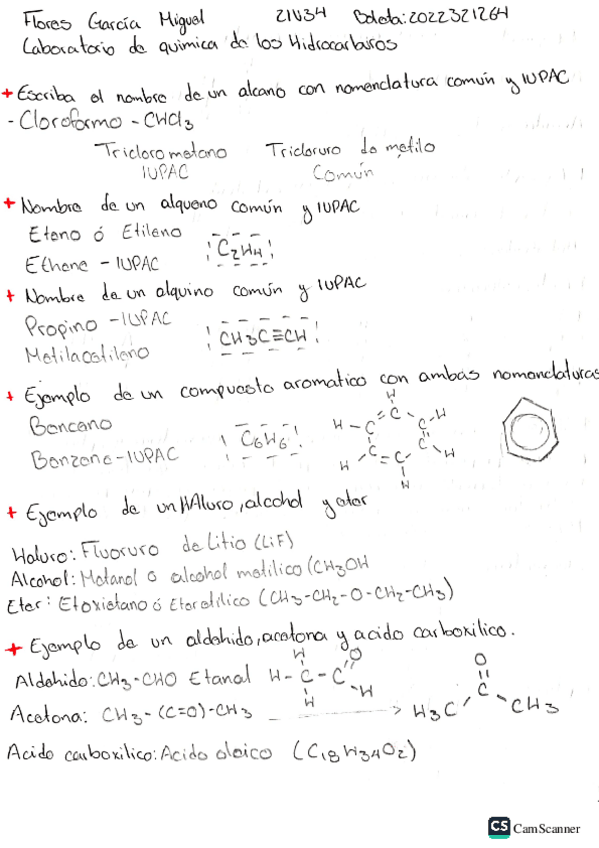 Flores García Miguel 21V34 Boleta:2022321264
Laboratorio de quimica de los Hidrocarburos
+ Escriba el nombre de un alcano con nomenclatura común y IUPAC
- Cloroformo - CHCl3
Tricloro metano Tricloruro de metilo
IUPAC Común
+ Nombre de un alqueno común y IUPAC
Eteno ó Etileno
C2H4
Ethene - IUPAC
+ Nombre de un alquino común y IUPAC
Propino - IUPAC
CH3C≡CH
Metilacetileno
+ Ejemplo de un compuesto aromatico con ambas nomenclaturas
Benceno
C6H6
Benzene - IUPAC
H H H H H H C C C C C C
+ Ejemplo de un HAluro, alcohol y eter
Haluro: Fluoruro de Litio (LiF)
Alcohol: Metanol o alcohol metilico (CH3OH
Eter: Etoxietano ó Eter etilico (CH3-CH2-O-CH2-CH3)
+ Ejemplo de un aldehido, acetona y acido carboxilico.
Aldehido: CH3-CHO Etanal H-C-C H H O H
Acetona: CH3-(C=O)-CH3 H3C C O CH3
Acido carboxilico: Acido oleico (C18H34O2)
CS CamScanner